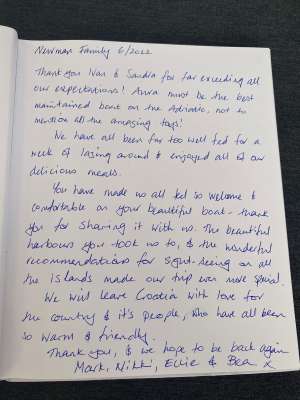 Newman Family 6/2022
Thank you Ivan & Sandra for far exceeding all
our expectations! Anra must be the best
maintained boat on the Adriatic, not to
mention all the amazing toys!
We have all been far too well fed for a
week of lazing around & enjoyed all of our
delicious meals.
You have made us all feel so welcome &
comfortable on your beautiful boat - thank
you for sharing it with us. The beautiful
harbours you took us to, & the wonderful
recommendations for sight-seeing on all
the islands made our trip even more special.
We will leave Croatia with love for
the country & it's people, who have all been
so warm & friendly.
Thank you, & we hope to be back again
Mark, Nikki, Ellie & Bea x